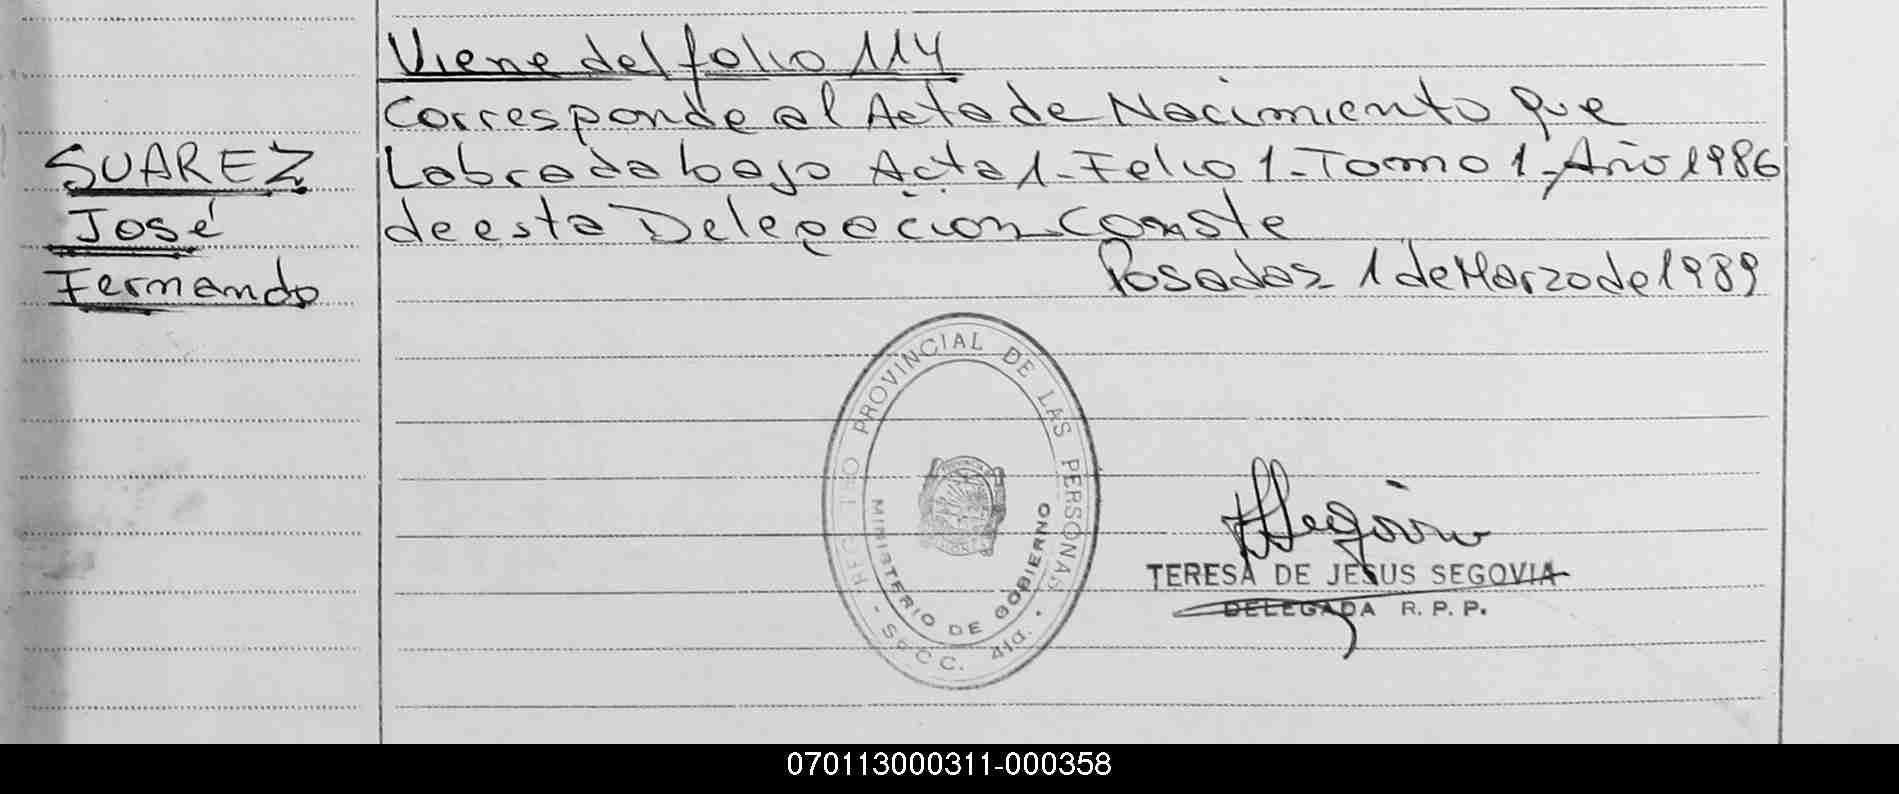 Viene del folio 114
Corresponde al Acta de Nacimiento que
SUAREZ
José
Fernando
Labrada bajo Acta 1-Folio 1-Tomo 1-Año 1986
de esta Delegacion-Conste
Posadas 1 de Marzo de 1989
REG TRO PROVINCIAL DE LAS PERSONAS
MINISTERIO DE GOBIERNO
C C. 41a.
Segovia
TERESA DE JESUS SEGOVIA
DELEGADA R. P. P.
070113000311-000358